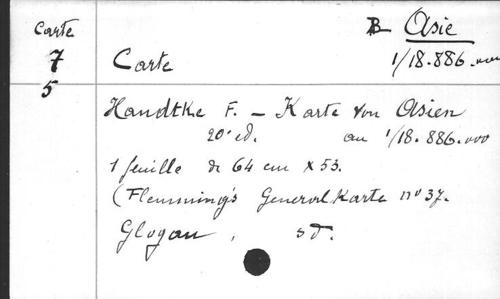 Carte
7
5
B Asie
Carte 1/18.886.000
Handtke F. – Karte von Asien
20e éd. au 1/18.886.000
1 feuille de 64 cm x 53.
(Flemming's General Karte n° 37.
Glogau, sd.